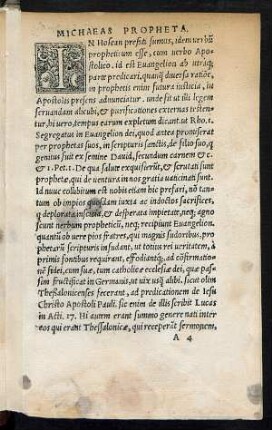 MICHAEAS PROPHETA.
IN Hoseam præfati sumus, idem verbũ
propheticum esse, cum verbo Apo-
stolico, id est Euangelion ab utraq;
parte prædicari, quanq̃ diuersa ratiõe,
in prophetis enim futura iusticia, in
Apostolis præsens adnunciatur, unde fit ut illi legem
seruandam adhuc, & purificationes externas testen-
tur, hi uero, tempus earum expletum dicant ut Rho. 1.
Segregatus in Euangelion dei, quod antea promiserat
per prophetas suos, in scripturis sanctis, de filio suo, q
genitus fuit ex semine Dauid, secundum carnem &c.
& 1. Pet. 1. De qua salute exquisierũt, & scrutati sunt
prophetæ, qui de uentura in nos gratia uaticinati sunt.
Id nunc collibitum est nobis etiam hic præfari, nõ tan-
tum ob impios iuxta ac indoctos sacrifices,
q deplorata inscitia, & desperata impietate, neq; agno
scunt uerbum propheticũ, neq; recipiunt Euangelion,
quantũ ob uere pios fratres, qui magnis sudoribus, pro
phetarũ scripturis insudant, ut totum rei ueritatem, à
primis fontibus requirant, effodiantq;, ad cõfirmatio-
nẽ fidei, cum suæ, tum catholicæ ecclesiæ dei, quæ pas-
sim fructificat in Germanis, ut uix usq; alibi. sicut olim
Thessalonicenses fecerant, ad prædicationem de Iesu
Christo Apostoli Pauli. sic enim de illis scribit Lucas
in Acti. 17. Hi autem erant summo genere nati inter
eos qui erant Thessalonicæ, qui receperũt sermonem,
A 4